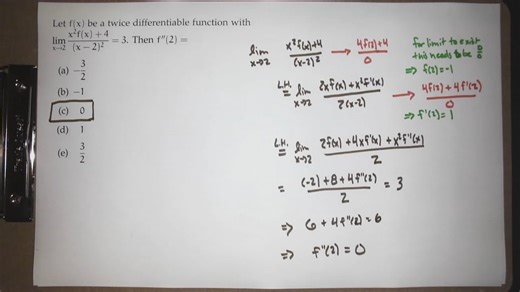 Let f(x) be a twice differentiable function with
lim x→2 x²f(x) + 4 / (x − 2)² = 3. Then f″(2) =
(a) −3/2
(b) −1
(c) 0
(d) 1
(e) 3/2
lim x→2 x²f(x)+4 / (x-2)² → 4f(2)+4 / 0
for limit to exist
this needs to be 0/0
⇒ f(2)=-1
L.H. = lim x→2 2xf(x) + x²f'(x) / 2(x-2) → 4f(2) + 4f'(2) / 0
⇒ f'(2) = 1
L.H. = lim x→2 2f(x) + 4xf'(x) + x²f"(x) / 2
= (-2) + 8 + 4f"(2) / 2 = 3
⇒ 6 + 4f"(2) = 6
⇒ f"(2) = 0